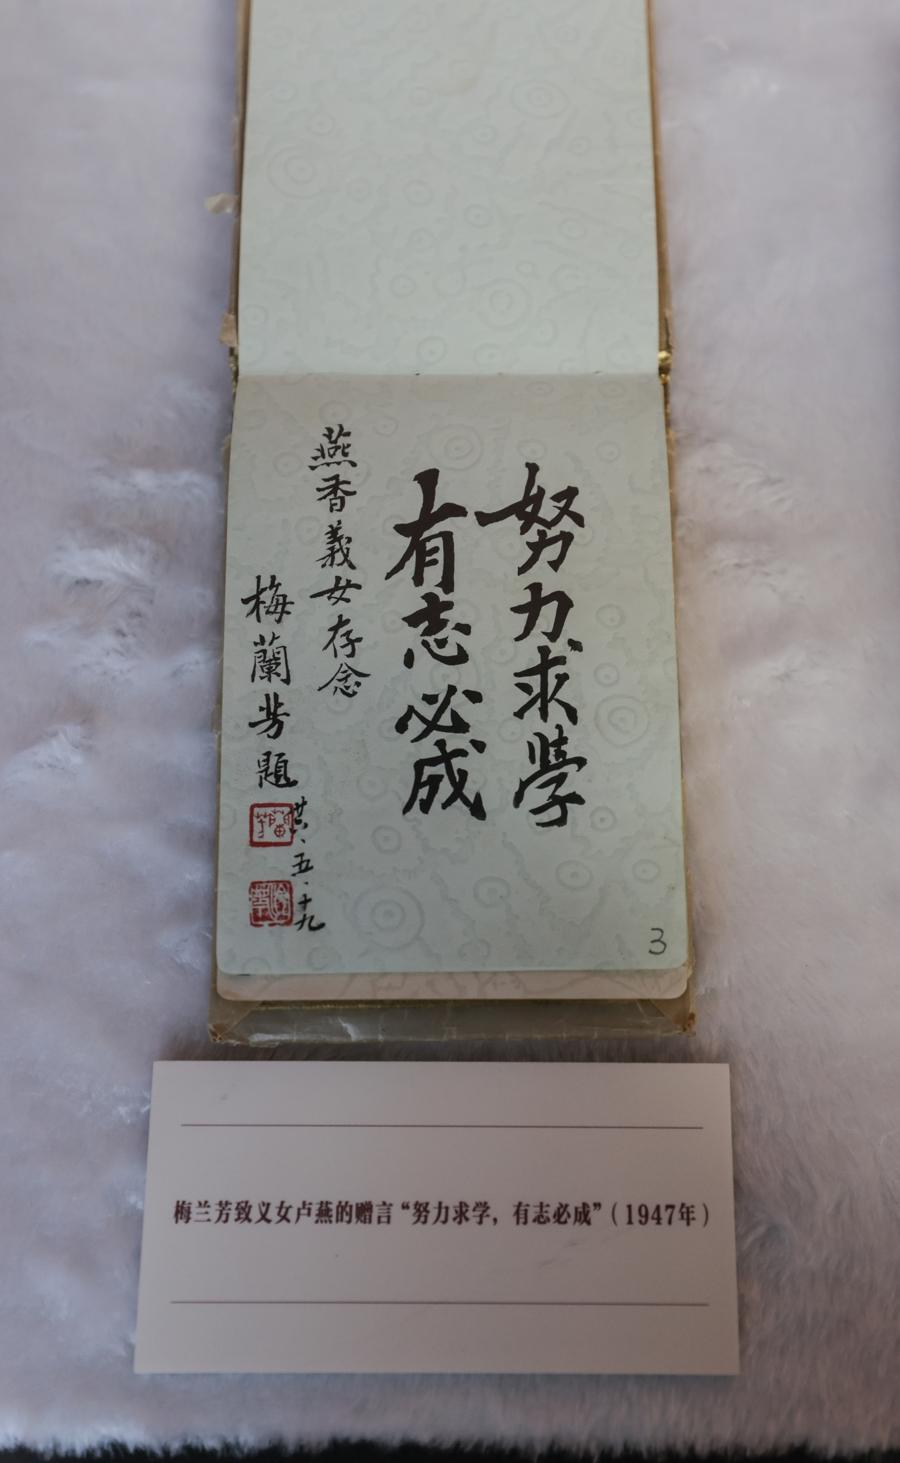 努力求學
有志必成
燕香義女存念
梅蘭芳題
卅六、五、十九
3
梅兰芳致义女卢燕的赠言“努力求学，有志必成”（1947年）